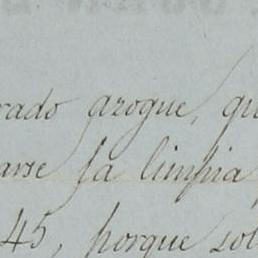 rado azogue, qu
arse la limpia
45, porque sol